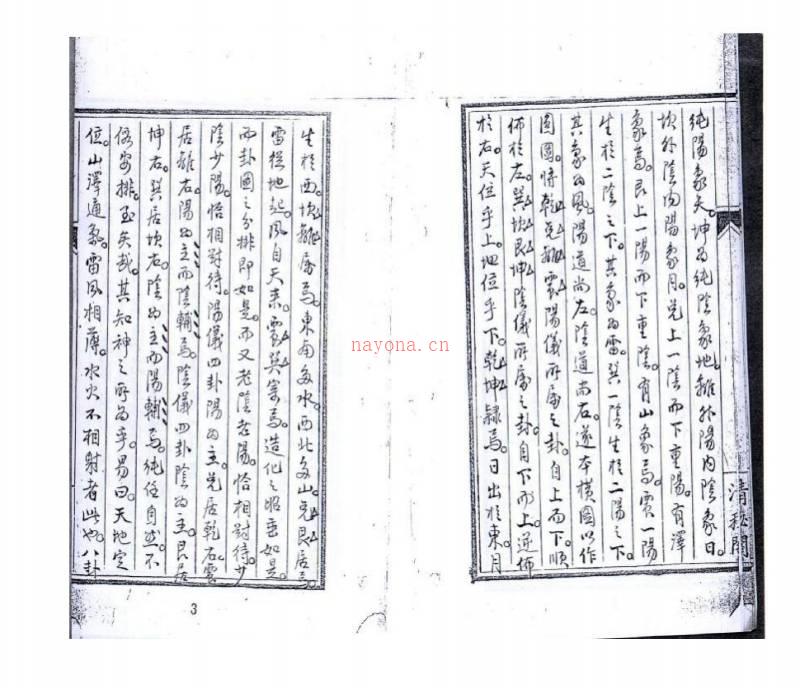 純陽象天。坤為純陰象地。離外陽內陰象日。
坎外陰內陽象月。兌上一陰而下重陽。有澤
象焉。艮上一陽而下重陰。有山象焉。震一陽
生於二陰之下。其象為雷。巽一陰生於二陽之下。
其象為風。陽道尚左。陰道尚右。遂本橫圖以作
圓圖。將乾兌離震陽儀所屬之卦。自上而下。順
佈於左。巽坎艮坤陰儀所屬之卦。自下而上。逆佈
於右。天位乎上。地位乎下。乾坤隸焉。日出於東。月
清秘閣
生於西。坎離居焉。東南多水。西北多山。兌艮居焉。
雷從地起。風自天來。震巽寓焉。造化之昭垂如是。
而卦圖之分排即如是。而又老陰老陽。恰相對待。少
陰少陽。恰相對待。陽儀四卦陽為主。兌居乾右。震
居離右。陽為主而陰輔焉。陰儀四卦陰為主。艮居
坤右。巽居坎右。陰為主而陽輔焉。純任自然。不
俟安排。至矣哉。其知神之所為乎。易曰。天地定
位。山澤通氣。雷風相薄。水火不相射者此也。八卦
3
nayona.cn